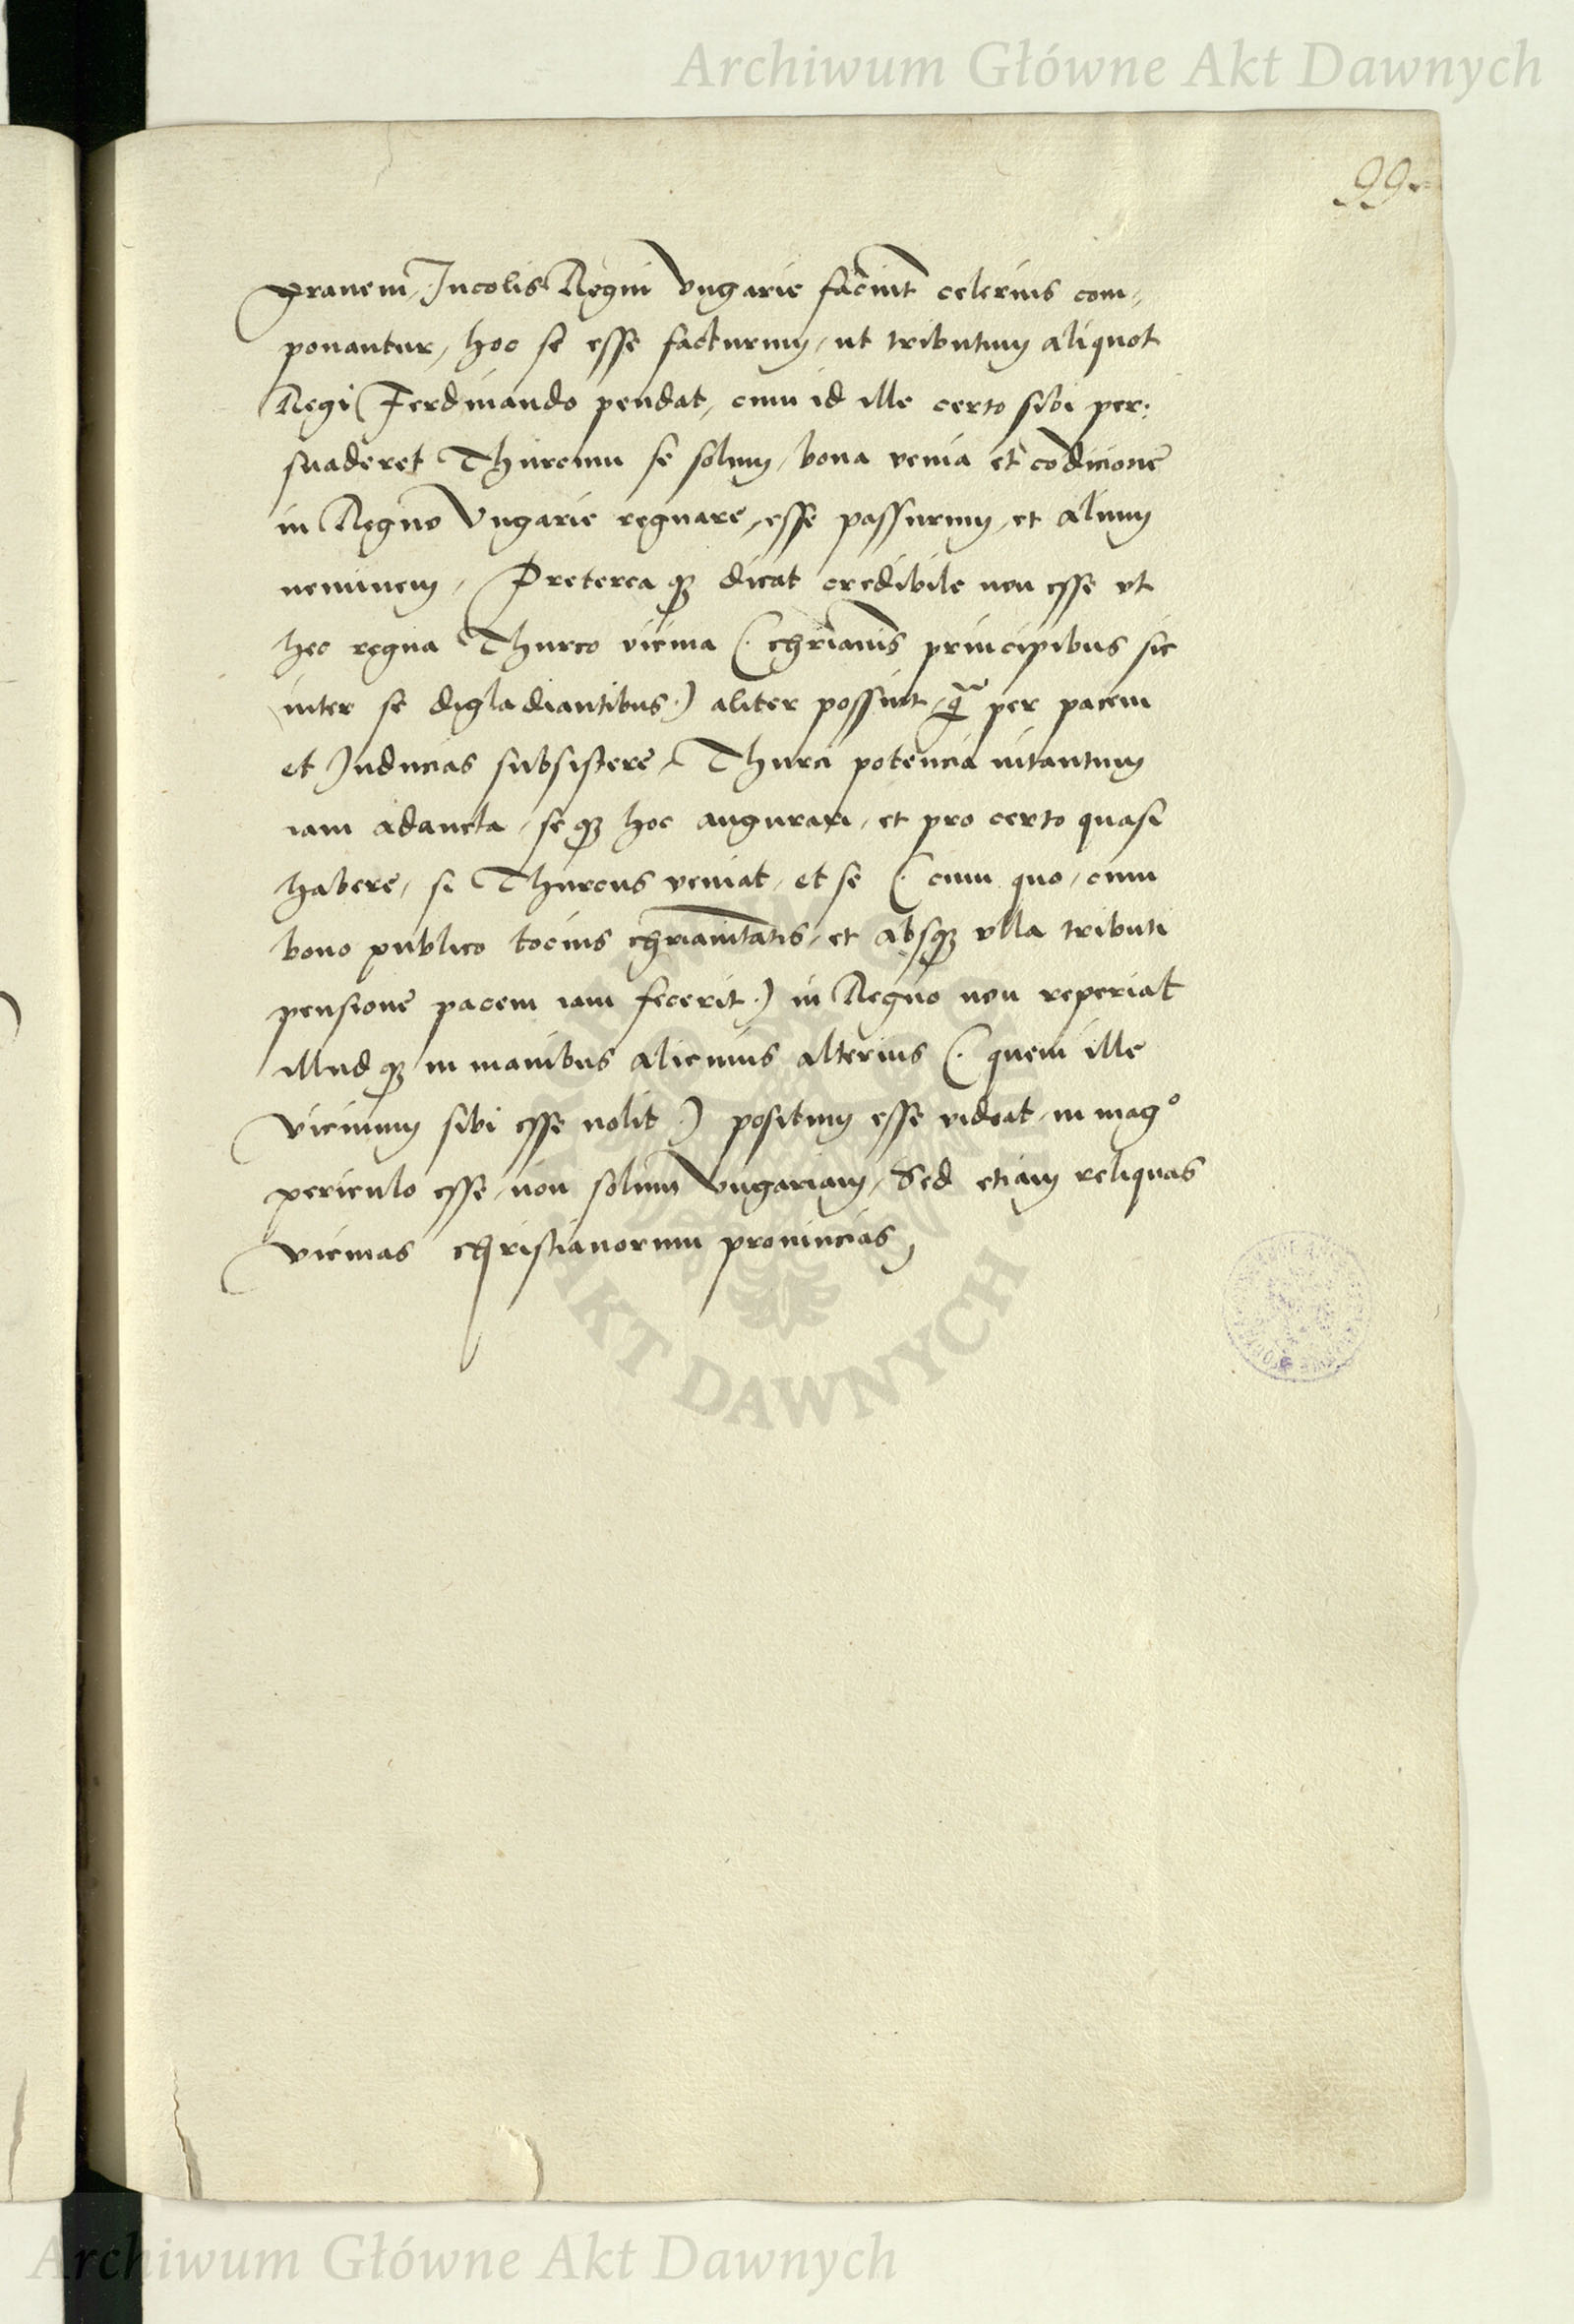 Archiwum Główne Akt Dawnych
99.
grauem, Incolis Regni Vngarie faciunt celerius com-
ponantur, hoc se esse facturum, ut tributum aliquot
Regi Ferdinando pendat, cum id ille certo sibi per:
suaderet Thurcum se solum, bona venia et co̅dicione
in Regno Vngarie regnare, esse passurum, et alium
neminem, Preterea qꝫ dicat credibile non esse vt
hec regna Thurco vicina (. chr̅ianis principibus sic
inter se digladiantibus .) aliter possint, q̃ per pacem
et Inducias subsistere, Thurci potencia intantum
iam adaucta, se qꝫ hoc augurari, et pro certo quasi
habere, si Thurcus veniat, et se (. cum quo, cum
bono publico tocius chr̅ianitatis, et absqꝫ vlla tributi
pensione pacem iam fecerit .) in Regno non reperiat
illud qꝫ in manibus alicuius alterius (. quem ille
vicinum sibi esse nolit .) positum esse videat, in magº
periculo esse, non solum Vngariam, Sed etiam reliquas
vicinas christianorum prouincias,
AKT DAWNYCH
Archiwum Główne Akt Dawnych